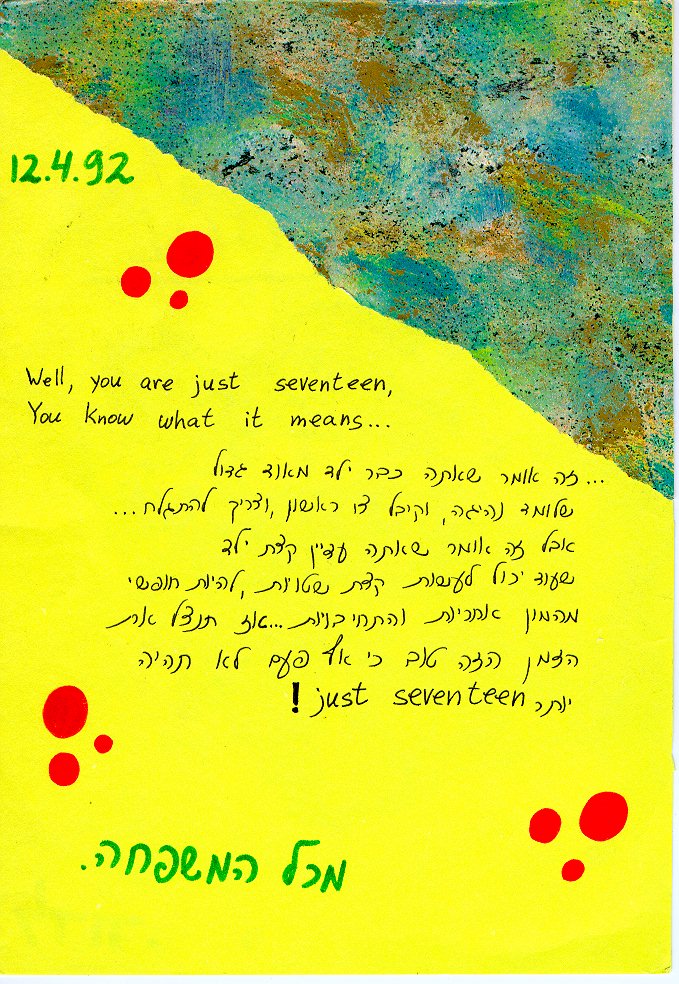 12.4.92
Well, you are just seventeen,
You know what it means...
...זה אומר שאתה כבר ילד מאוד גדול
שלומד נהיגה, וקיבל צו ראשון, וצריך להתגלח...
אבל זה אומר שאתה עדיין קצת ילד
שעוד יכול לעשות קצת שטויות, להיות חופשי
מהמון אחריות והתחיבויות...אז תנצל את
הזמן הזה טוב כי אף פעם לא תהיה
יותר just seventeen!
מכל המשפחה.